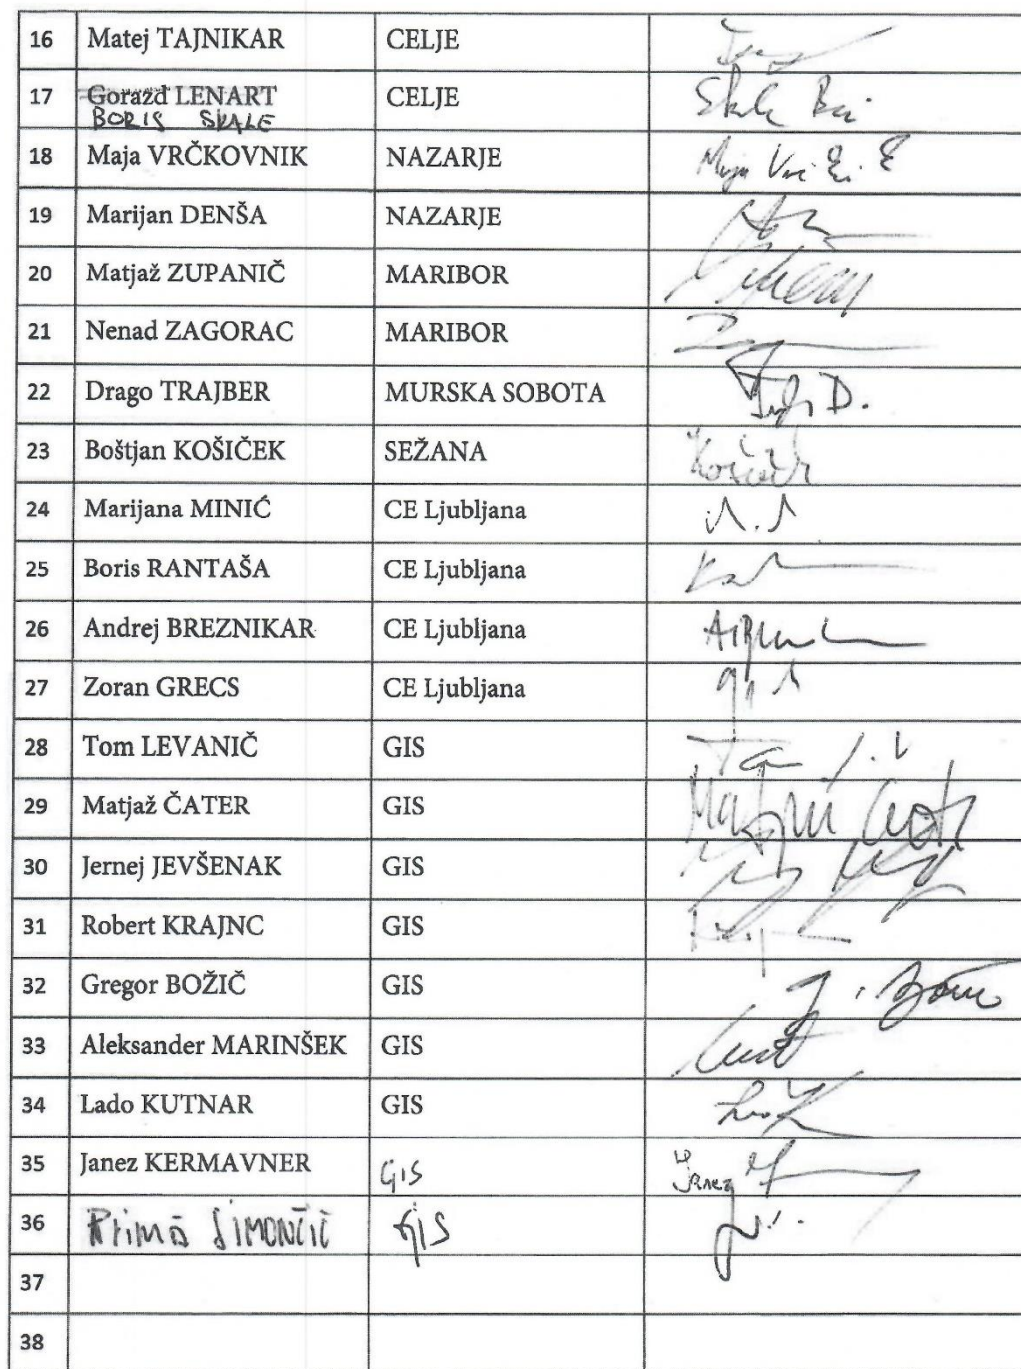 16 Matej TAJNIKAR CELJE
17 Gorazd LENART CELJE Skale Bori
BORIS SKALE
18 Maja VRČKOVNIK NAZARJE Maja
19 Marijan DENŠA NAZARJE
20 Matjaž ZUPANIČ MARIBOR
21 Nenad ZAGORAC MARIBOR
22 Drago TRAJBER MURSKA SOBOTA D.
23 Boštjan KOŠIČEK SEŽANA Košiček
24 Marijana MINIĆ CE Ljubljana
25 Boris RANTAŠA CE Ljubljana
26 Andrej BREZNIKAR CE Ljubljana
27 Zoran GRECS CE Ljubljana
28 Tom LEVANIČ GIS
29 Matjaž ČATER GIS Matjaž Čater
30 Jernej JEVŠENAK GIS
31 Robert KRAJNC GIS
32 Gregor BOŽIČ GIS
33 Aleksander MARINŠEK GIS
34 Lado KUTNAR GIS
35 Janez KERMAVNER GIS Janez
36 SIMONČIČ GIS
37
38